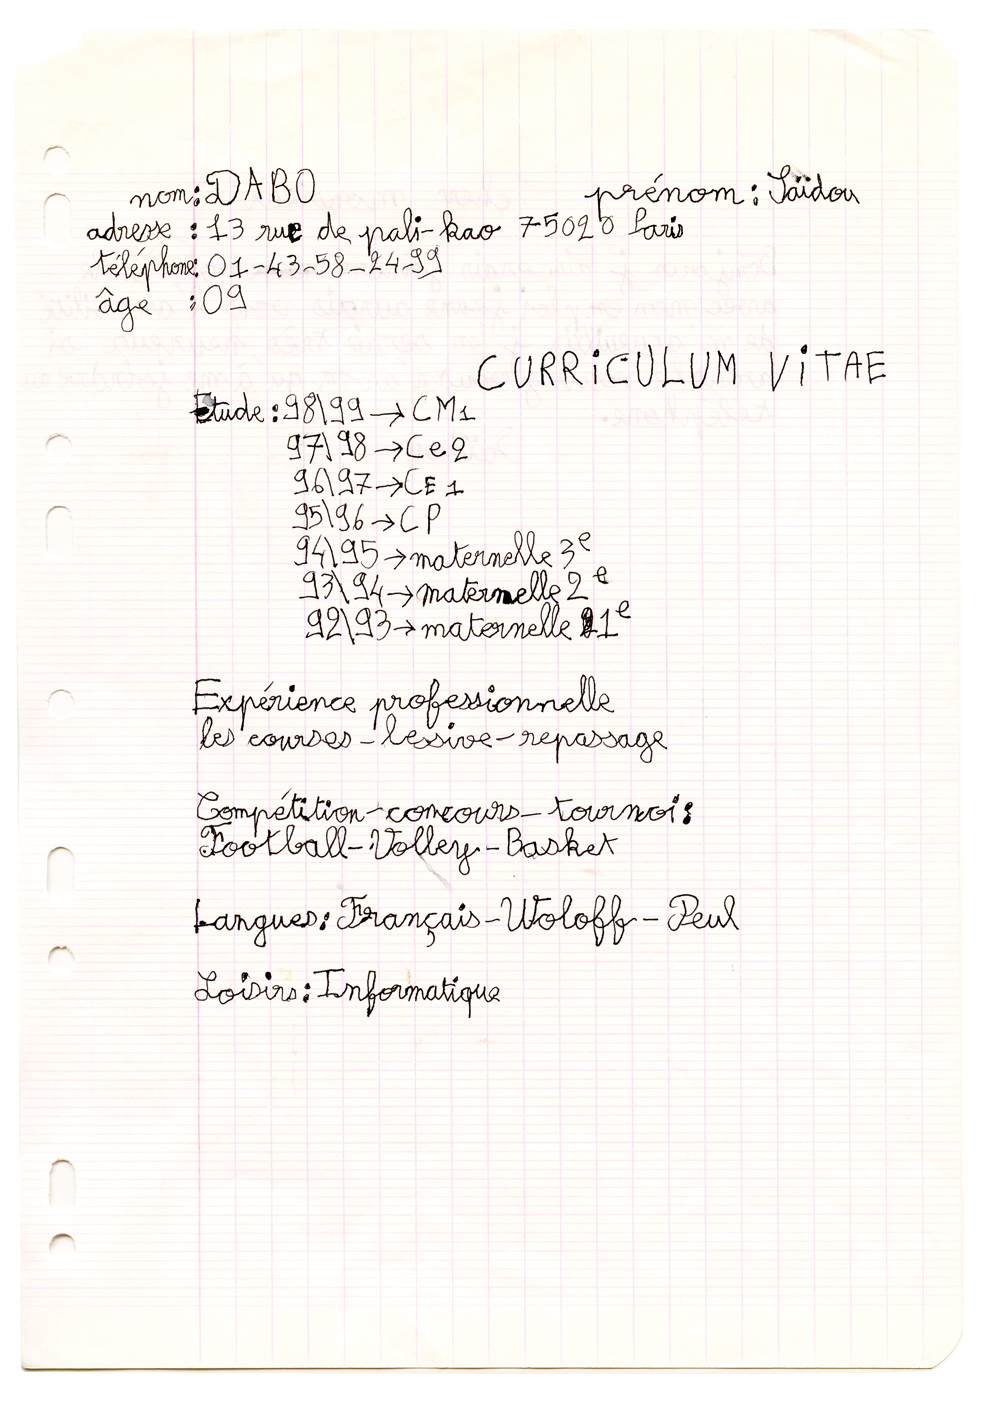 nom: DABO prénom: Saïdou
adresse : 13 rue de pali-kao 75020 Paris
téléphone: 01-43-58-24-99
âge : 09
CURRiCULUM ViTAE
Etude : 98\99 → CM1
97\98 → Ce2
96\97 → CE1
95\96 → CP
94\95 → maternelle 3e
93\94 → maternelle 2e
92\93 → maternelle 1e
Expérience professionnelle
les courses - lessive - repassage
Compétition - concours - tournoi:
Football - Volley - Basket
Langues: Français - Woloff - Peul
Loisirs: Informatique